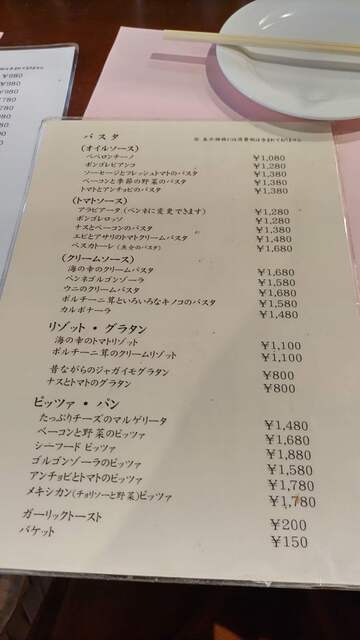 パスタ
※ 表示価格には消費税は含まれておりません
(オイルソース)
ペペロンチーノ ¥1,080
ボンゴレビアンコ ¥1,280
ソーセージとフレッシュトマトのパスタ ¥1,380
ベーコンと季節の野菜のパスタ ¥1,380
トマトとアンチョビのパスタ ¥1,380
(トマトソース)
アラビアータ(ペンネに変更できます) ¥1,280
ボンゴレロッソ ¥1,280
ナスとベーコンのパスタ ¥1,380
エビとアサリのトマトクリームパスタ ¥1,480
ペスカトーレ(魚介のパスタ) ¥1,680
(クリームソース)
海の幸のクリームパスタ ¥1,680
ペンネゴルゴンゾーラ ¥1,580
ウニのクリームパスタ ¥1,680
ポルチーニ茸といろいろなキノコのパスタ ¥1,580
カルボナーラ ¥1,480
リゾット・グラタン
海の幸のトマトリゾット ¥1,100
ポルチーニ茸のクリームリゾット ¥1,100
昔ながらのジャガイモグラタン ¥800
ナスとトマトのグラタン ¥800
ピッツァ・パン
たっぷりチーズのマルゲリータ ¥1,480
ベーコンと野菜のピッツァ ¥1,680
シーフードピッツァ ¥1,880
ゴルゴンゾーラのピッツァ ¥1,580
アンチョビとトマトのピッツァ ¥1,780
メキシカン(チョリソーと野菜)ピッツァ ¥1,780
ガーリックトースト ¥200
バケット ¥150